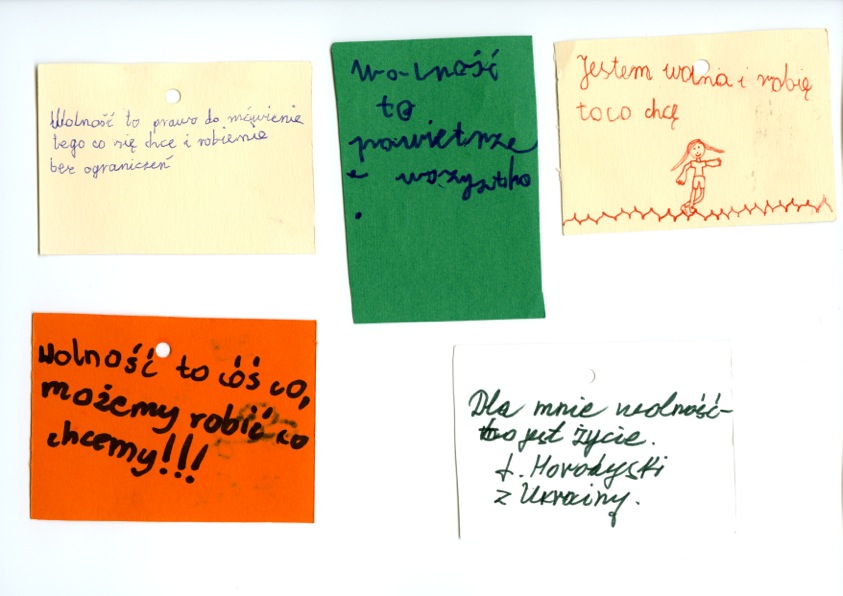 Wolność to prawo do mówienie
tego co się chce i robienie
bez ograniczeń
Wo-lność
to
powietrze
i wszystko
.
Jestem wolna i robię
to co chcę
Wolność to cóś co,
możemy robić co
chcemy!!!
Dla mnie wolność-
to jest życie.
z Ukrainy.